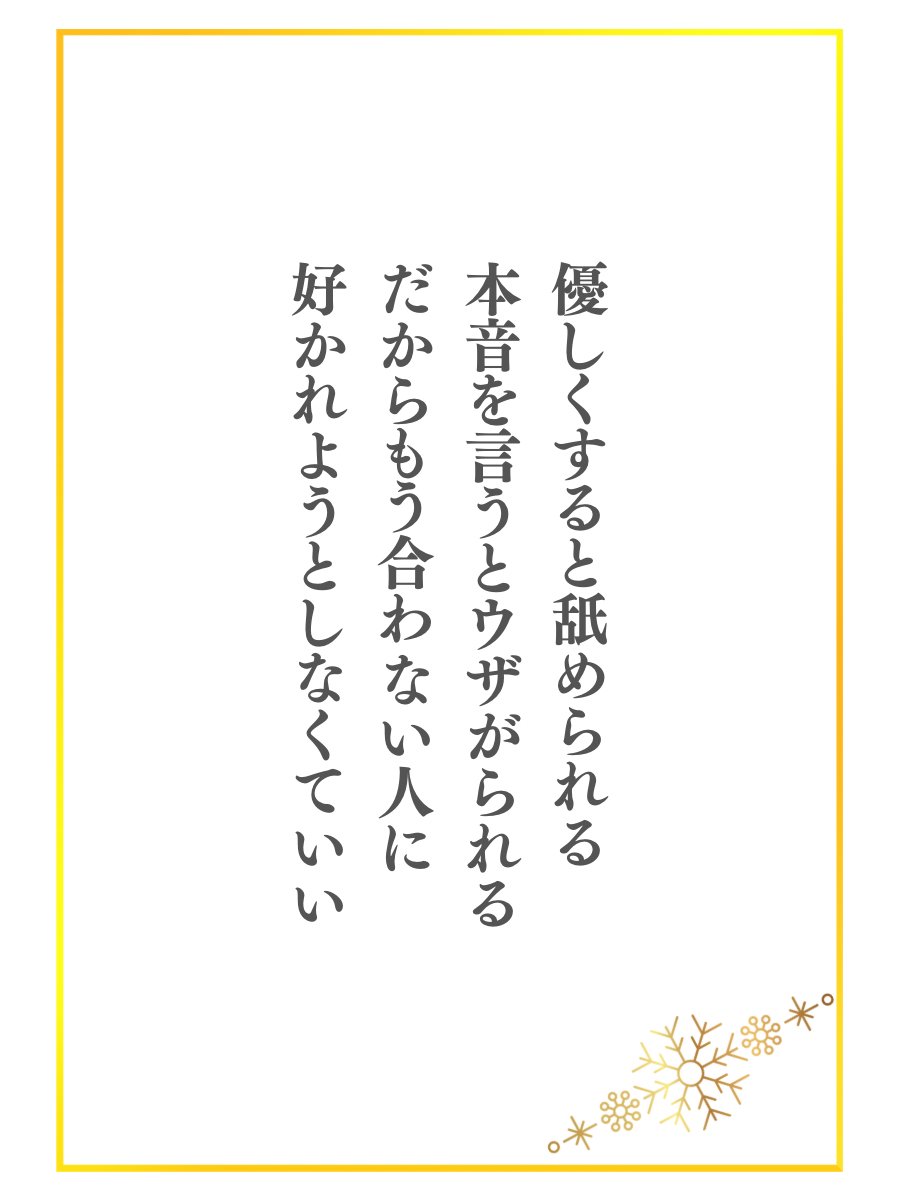 優しくすると舐められる
本音を言うとウザがられる
だからもう合わない人に
好かれようとしなくていい